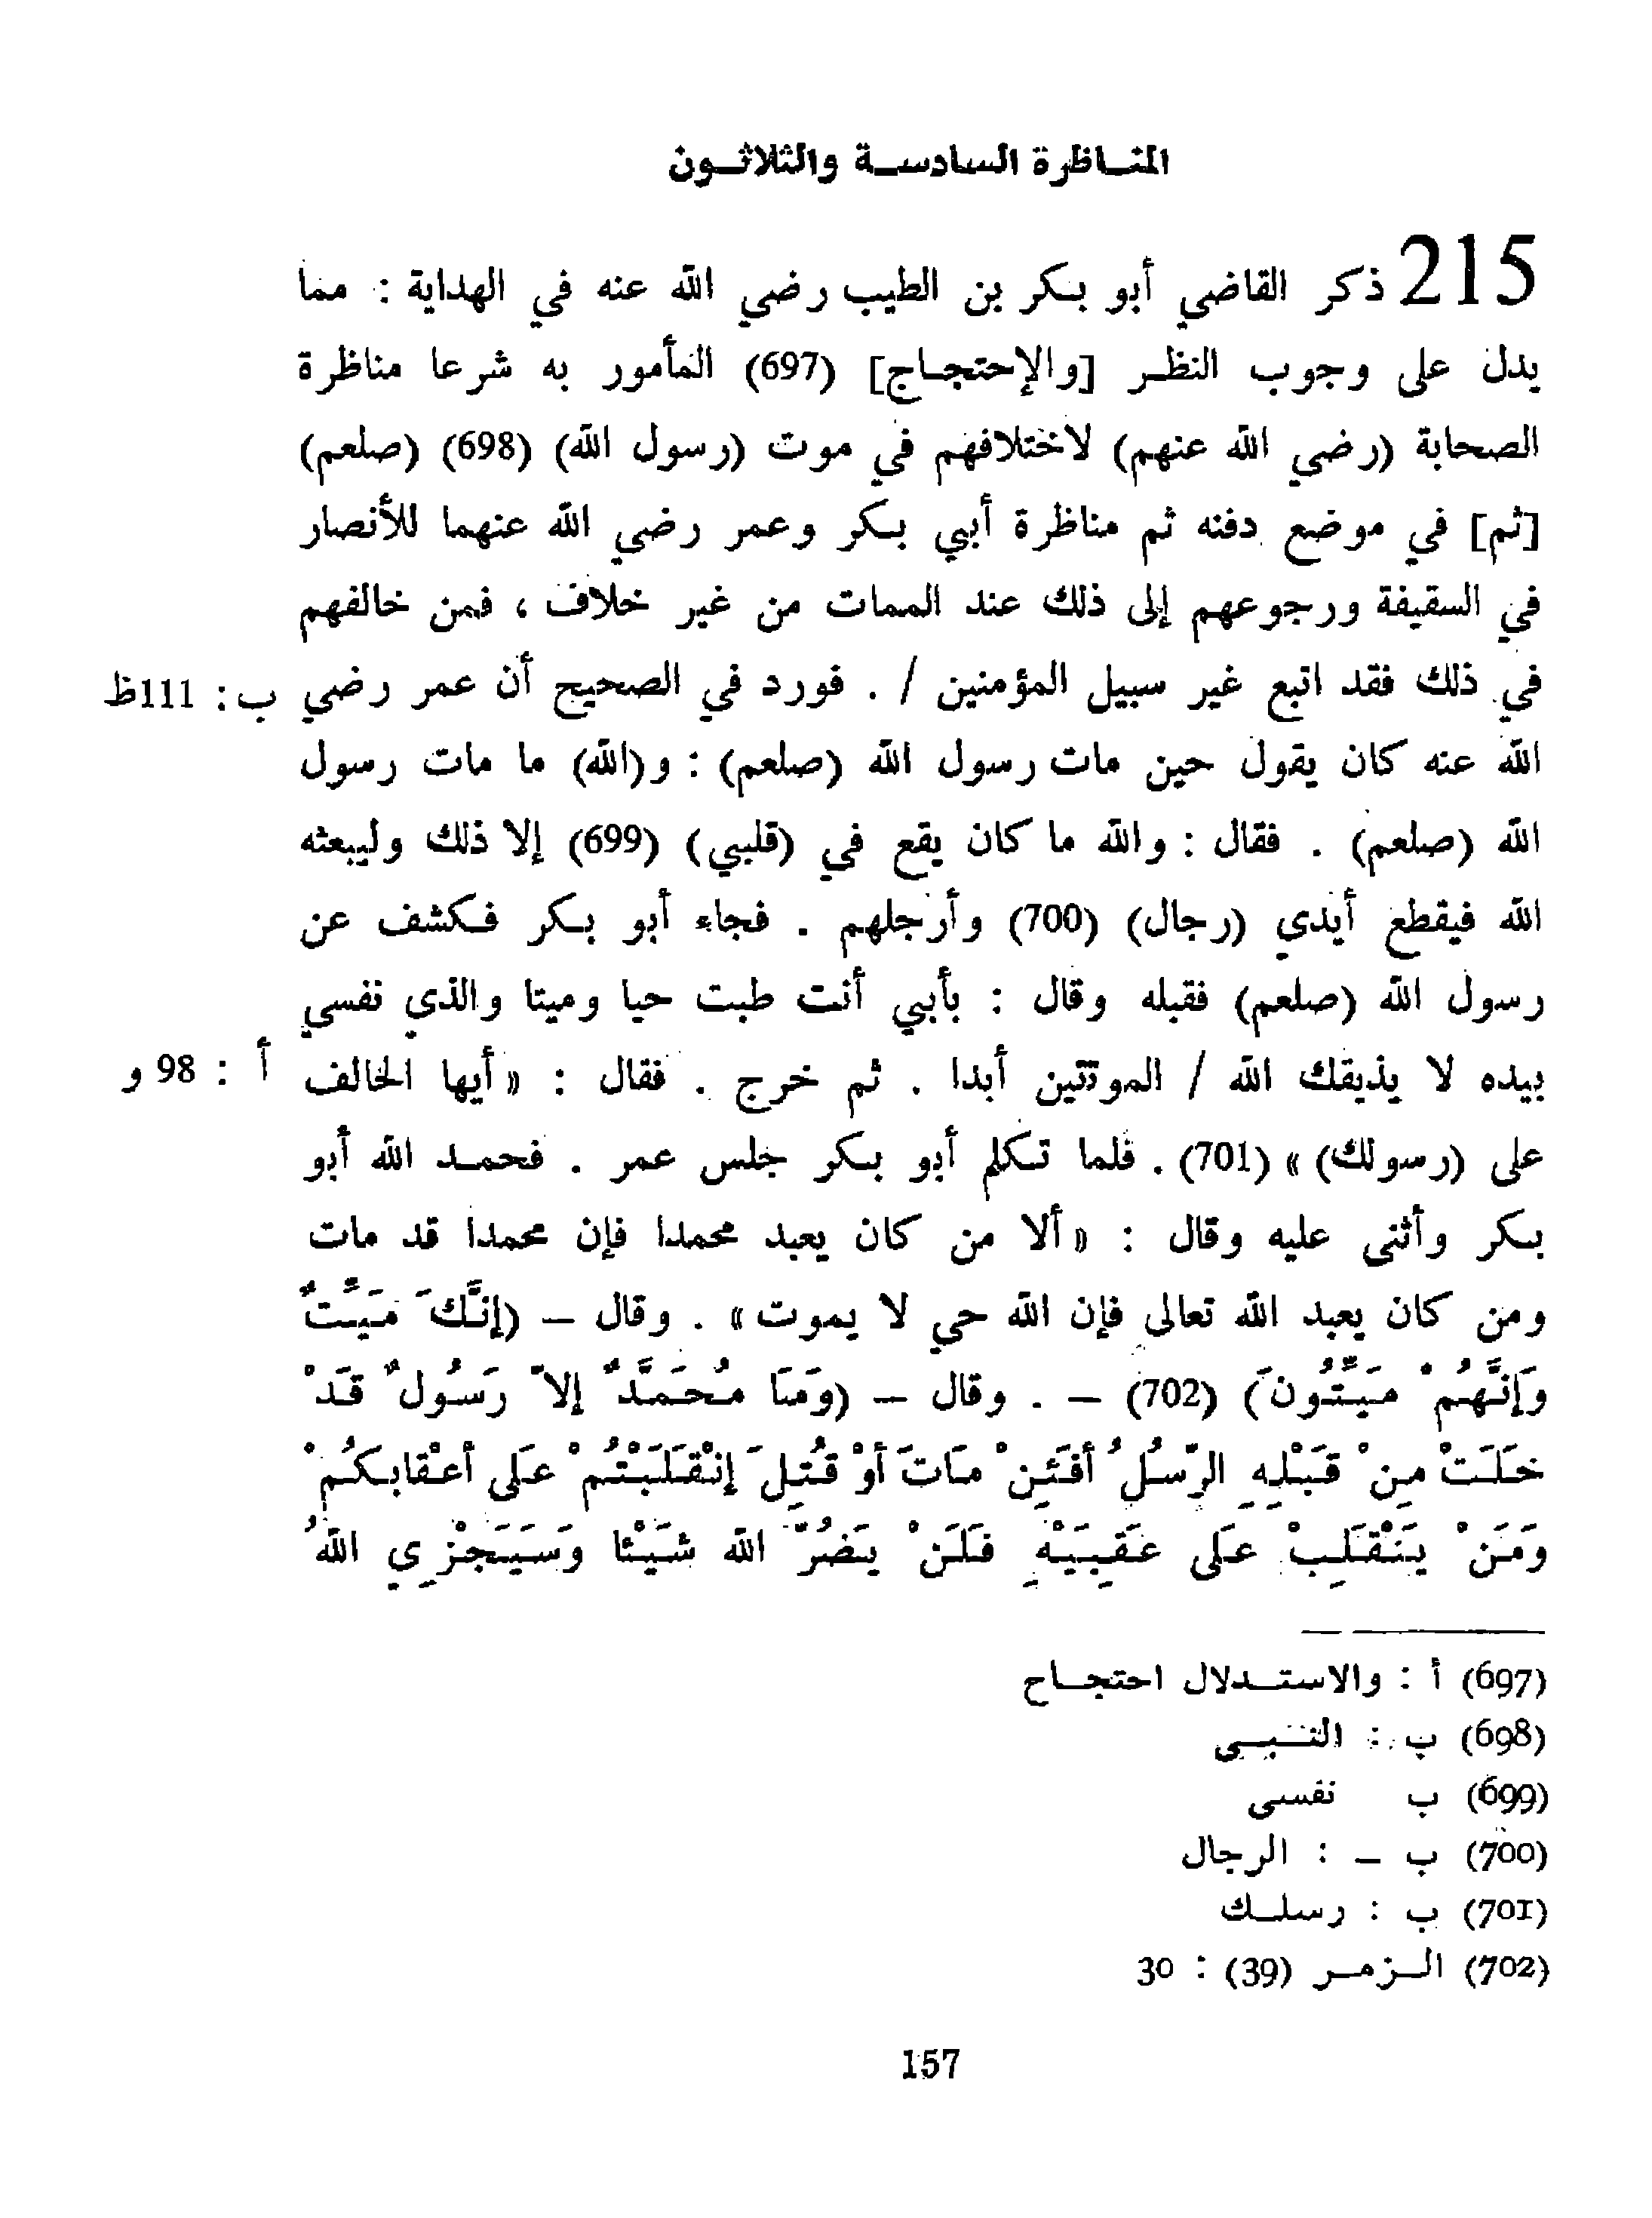 المناظرة السادسة والثلاثون
215 ذكر القاضي أبو بكر بن الطيب رضي الله عنه في الهداية : مما
يدل على وجوب النظر [والإحتجاج] (697) المأمور به شرعا مناظرة
الصحابة (رضي الله عنهم) لاختلافهم في موت (رسول الله) (698) (صلعم)
[ثم] في موضع دفنه ثم مناظرة أبي بكر وعمر رضي الله عنهما للأنصار
في السقيفة ورجوعهم إلى ذلك عند الممات من غير خلاف ، فمن خالفهم
في ذلك فقد اتبع غير سبيل المؤمنين / . فورد في الصحيح أن عمر رضي ب : 111ظ
الله عنه كان يقول حين مات رسول الله (صلعم) : و(الله) ما مات رسول
الله (صلعم) . فقال : والله ما كان يقع في (قلبي) (699) إلا ذلك وليبعثه
الله فيقطع أيدي (رجال) (700) وأرجلهم . فجاء أبو بكر فكشف عن
رسول الله (صلعم) فقبله وقال : بأبي أنت طبت حيا وميتا والذي نفسي
بيده لا يذيقك الله / الموتتين أبدا . ثم خرج . فقال : « أيها الخالف أ : 98 و
على (رسولك) » (701) . فلما تكلم أبو بكر جلس عمر . فحمد الله أبو
بكر وأثنى عليه وقال : « ألا من كان يعبد محمدا فإن محمدا قد مات
ومن كان يعبد الله تعالى فإن الله حي لا يموت » . وقال – (إنَّكَ مَيِّتٌ
وَإنَّهُمْ مَيِّتُونَ) (702) – . وقال – (وَمَا مُحَمَّدٌ إلاّ رَسُولٌ قَدْ
خَلَتْ مِنْ قَبْلِهِ الرّسُلُ أفَئِنْ مَاتَ أوْ قُتِلَ إنْقَلَبْتُمْ عَلى أعْقابِكُمْ
وَمَنْ يَنْقَلِبْ عَلى عَقِبَيْهِ فَلَنْ يَضُرّ الله شَيْئا وَسَيَجْزِي اللهُ
(697) أ : والاستدلال احتجاح
(698) ب : النبي
(699) ب نفسي
(700) ب – : الرجال
(701) ب : رسلك
(702) الزمر (39) : 30
157